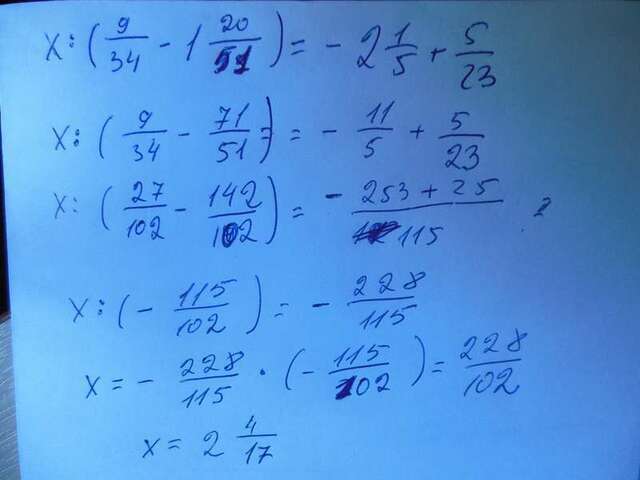 x : ( 9/34 - 1 20/51 ) = - 2 1/5 + 5/23
x : ( 9/34 - 71/51 ) = - 11/5 + 5/23
x : ( 27/102 - 142/102 ) = - 253 + 25 / 115 2
x : ( - 115/102 ) = - 228/115
x = - 228/115 · ( - 115/102 ) = 228/102
x = 2 4/17